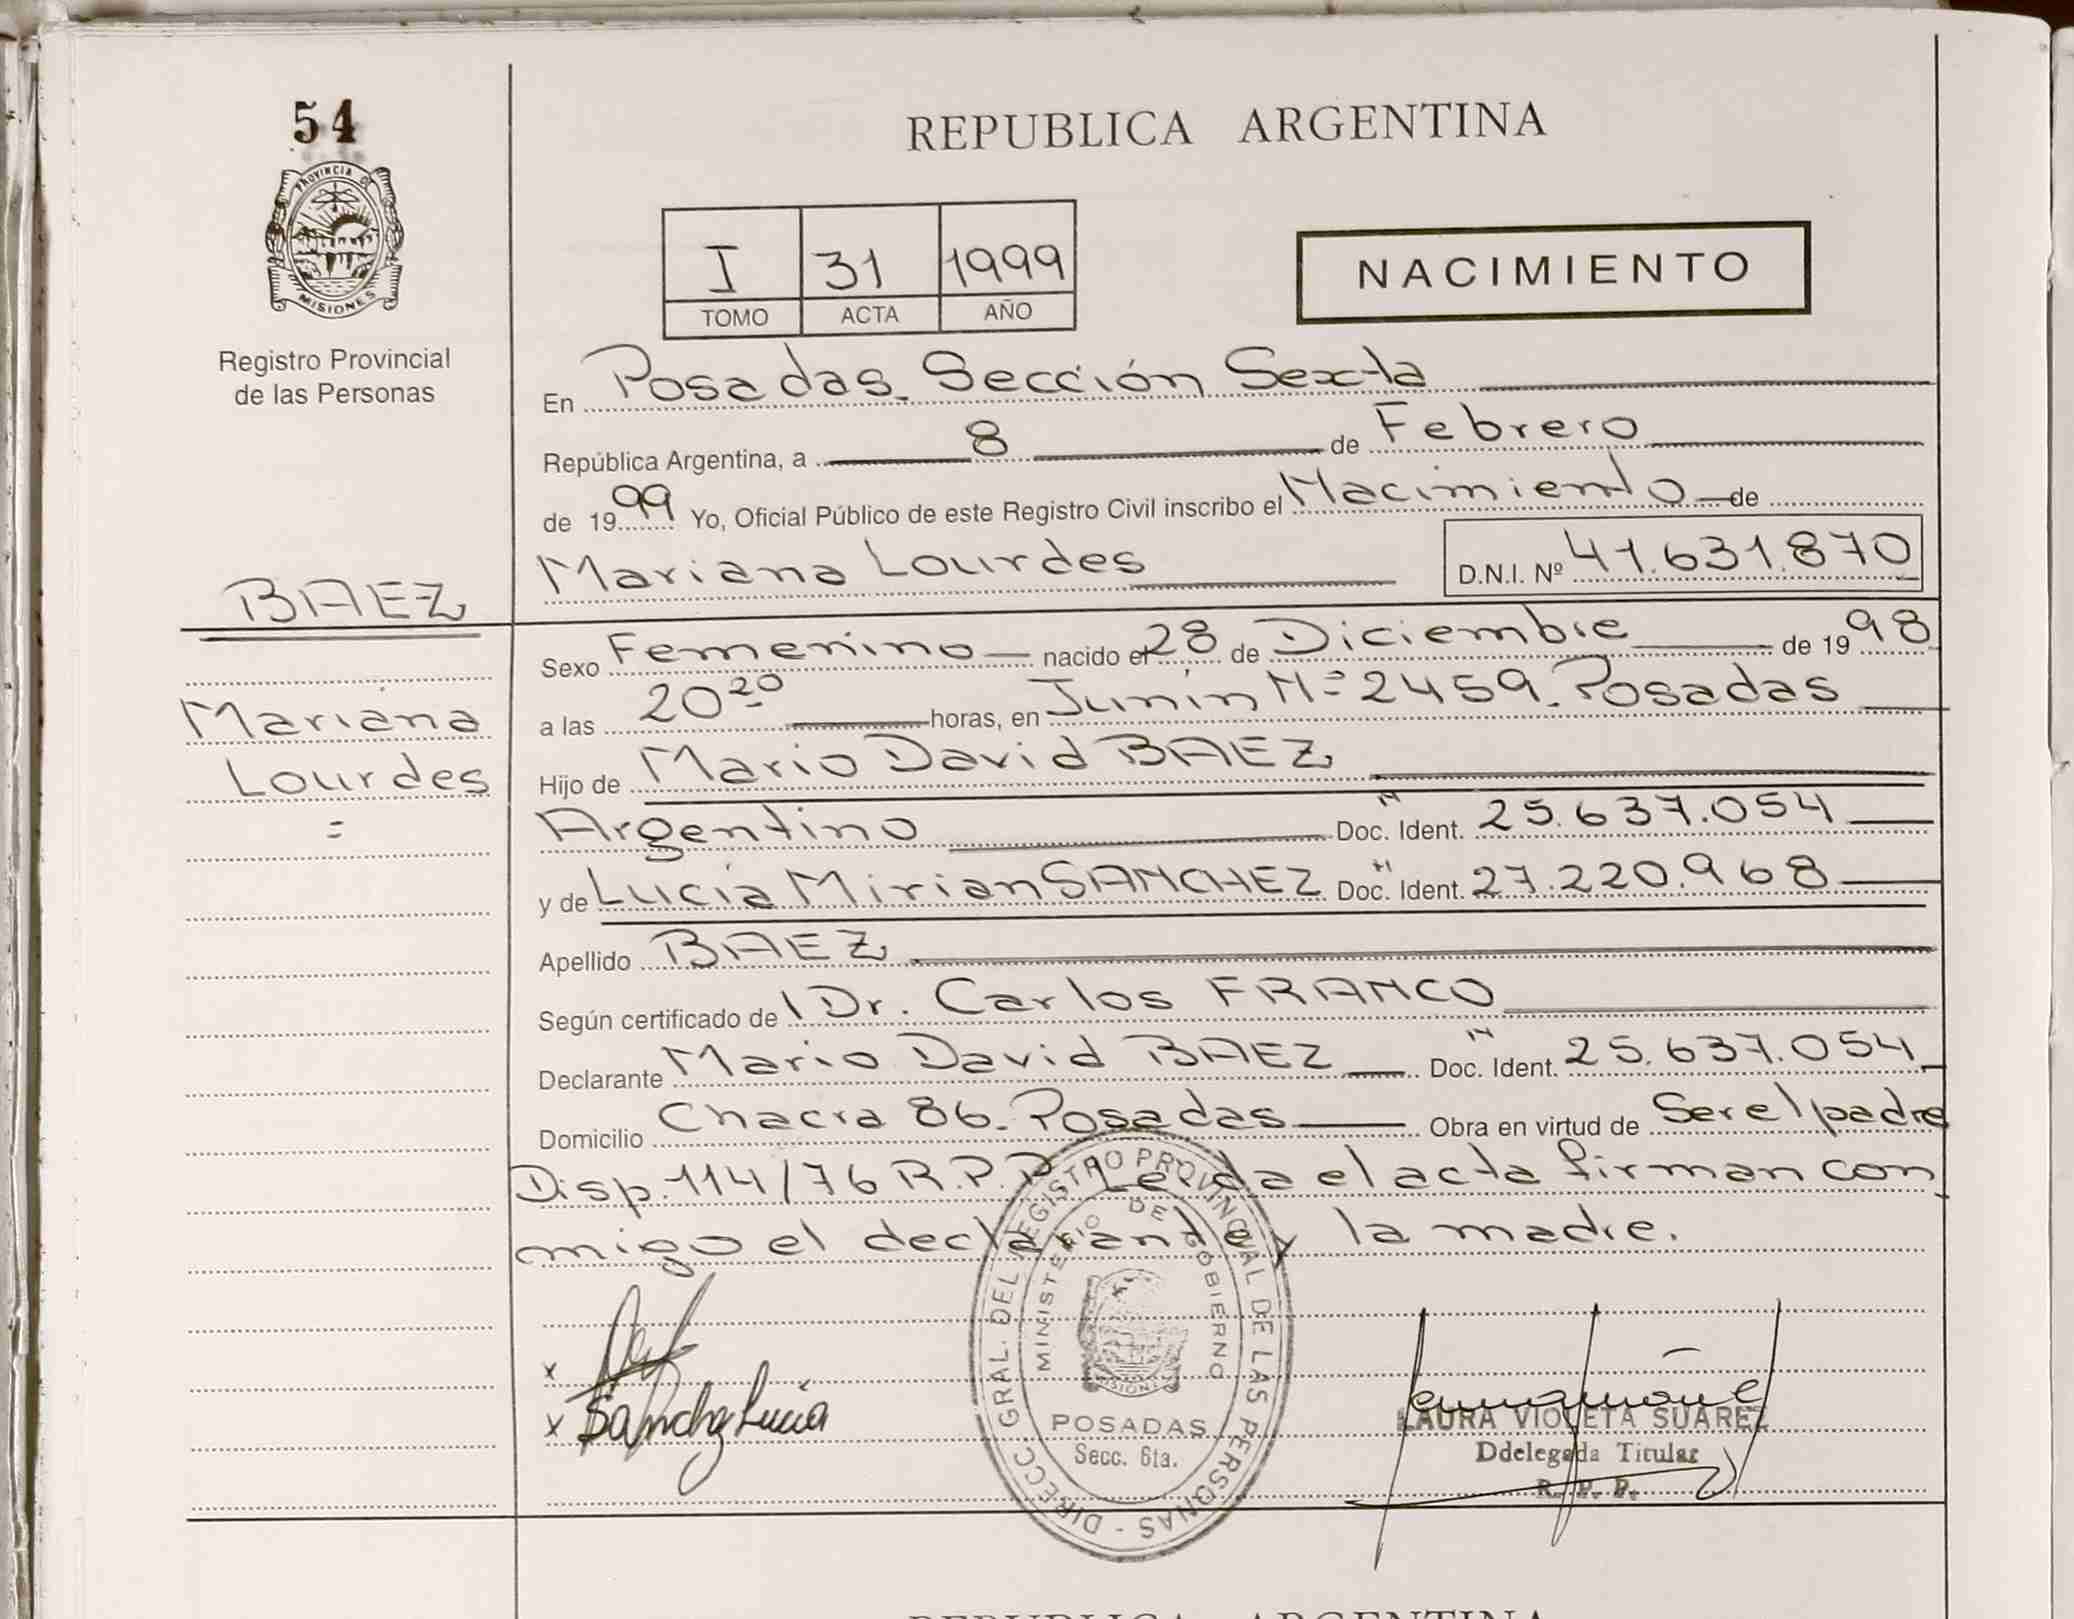 54
PROVINCIA DE
MISIONES
Registro Provincial
de las Personas
REPUBLICA ARGENTINA
I 31 1999
TOMO ACTA AÑO
NACIMIENTO
En Posadas Sección Sexta
República Argentina, a 8 de Febrero
de 1999 Yo, Oficial Público de este Registro Civil inscribo el Nacimiento de
Mariana Lourdes D.N.I. Nº 41.631.870
BAEZ
Mariana
Lourdes
=
Sexo Femenino nacido el 28 de Diciembre de 1998
a las 20 20 horas, en Junín Nº 2459. Posadas
Hijo de Mario David BAEZ
Argentino Doc. Ident. N 25.637.054
y de Lucía Mirian SANCHEZ Doc. Ident. N 27.220.968
Apellido BAEZ
Según certificado de Dr. Carlos FRANCO
Declarante Mario David BAEZ Doc. Ident. N 25.637.054
Domicilio Chacra 86. Posadas Obra en virtud de Ser el padre
Disp. 114/76 R.P.P. Leída el acta firman con
migo el declarante y la madre.
x
x Sanchez Lucía
DIRECC. GRAL. DEL REGISTRO PROVINCIAL DE LAS PERSONAS -
MINISTERIO DE GOBIERNO
MISIONES
POSADAS
Secc. 6ta.
LAURA VIOLETA SUAREZ
Ddelegada Titular
R. P. P.
REPUBLICA ARGENTINA